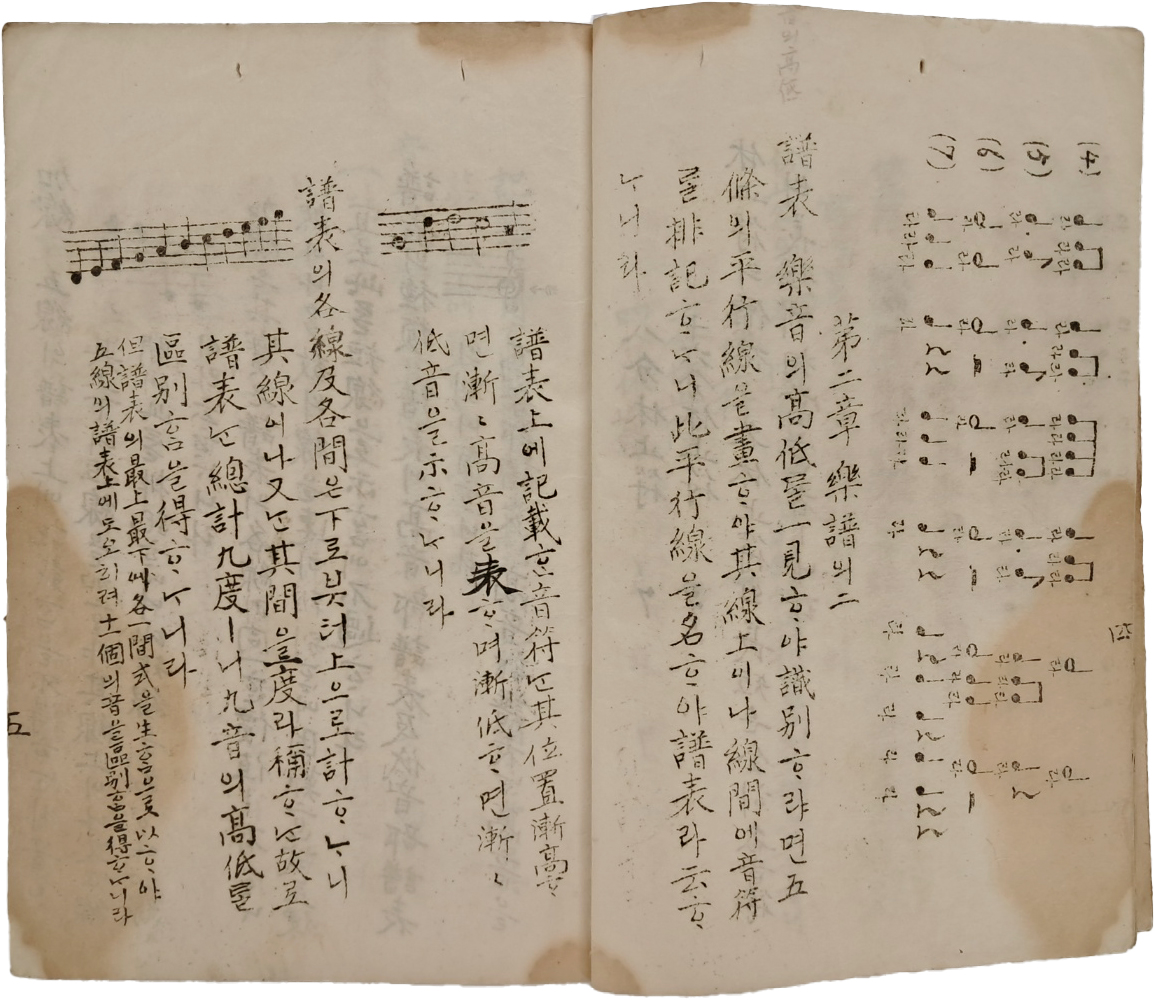 (4) 라 라라 라 라라 라라라라 라 라라 라 라
(5) 라 라 라 라 라 라라 라 라 라 라라 라
(6) 라 라 라 라 라 라 라 라
(7) 라라라 라 라라라 라 라 라 라 라 라
第二章 樂譜의 二
譜表 樂音의 高低를 一見ᄒᆞ야 識別ᄒᆞ랴면 五
條의 平行線을 畫ᄒᆞ야 其線上이나 線間에 音符
를 排記ᄒᆞᄂᆞ니 此平行線을 名ᄒᆞ야 譜表라 云ᄒᆞ
ᄂᆞ니라
四
譜表上에 記載ᄒᆞᆫ 音符ᄂᆞᆫ 其位置漸高ᄒᆞ
면 漸〻高音을 表ᄒᆞ며 漸低ᄒᆞ면 漸〻
低音을 示ᄒᆞᄂᆞ니라
譜表의 各線及各間은 下로붓터 上으로 計ᄒᆞᄂᆞ니
其線이나 又ᄂᆞᆫ 其間을 一度라 稱ᄒᆞᄂᆞᆫ故로
譜表ᄂᆞᆫ 總計九度ㅣ니 九音의 高低를
區別ᄒᆞᆷ을 得ᄒᆞᄂᆞ니라
但譜表의 最上最下에 各一間式을 生ᄒᆞᆷ으로 以ᄒᆞ야
五線의 譜表上에도 오히려 十一個의 音을 區別ᄒᆞᆷ을 得ᄒᆞᄂᆞ니라
五